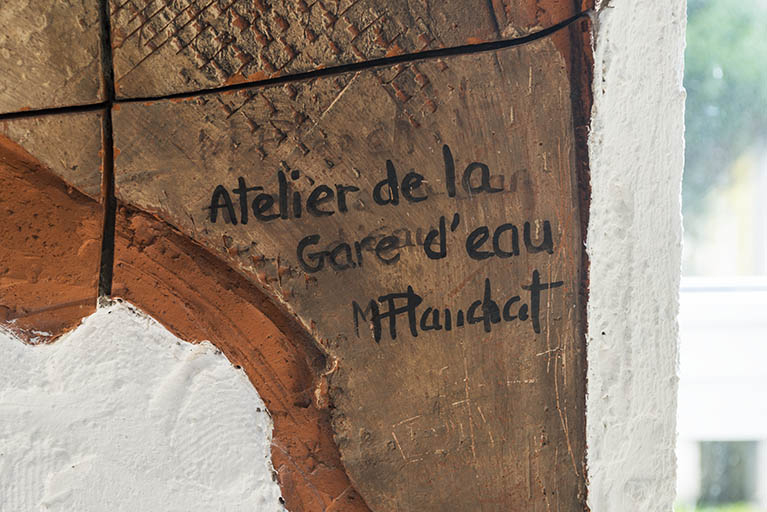 Atelier de la
Gare d'eau
MFPlanchat